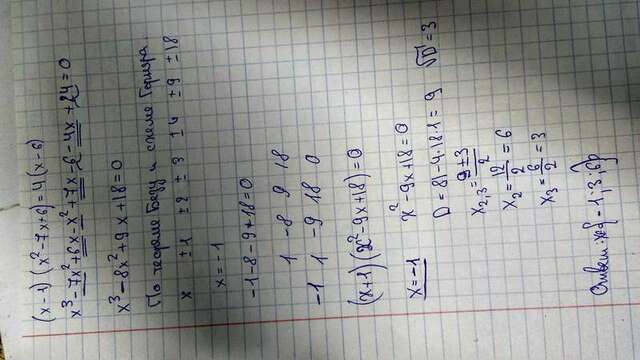 (x-1)(x²-7x+6)=4(x-6)
x³-7x²+6x-x²+7x-6-4x+24=0
x³-8x²+9x+18=0
По теореме Безу и схеме Горнера.
x ±1 ±2 ±3 ±4 ±9 ±18
x=-1
-1-8-9+18=0
1 -8 9 18
-1 1 -9 18 0
(x+1)(x²-9x+18)=0
x=-1 x²-9x+18=0
D=81-4·18·1=9 √D=3
x₂,₃=9±3/2
x₂=12/2=6
x₃=6/2=3
Ответ: x∈{-1;3;6}